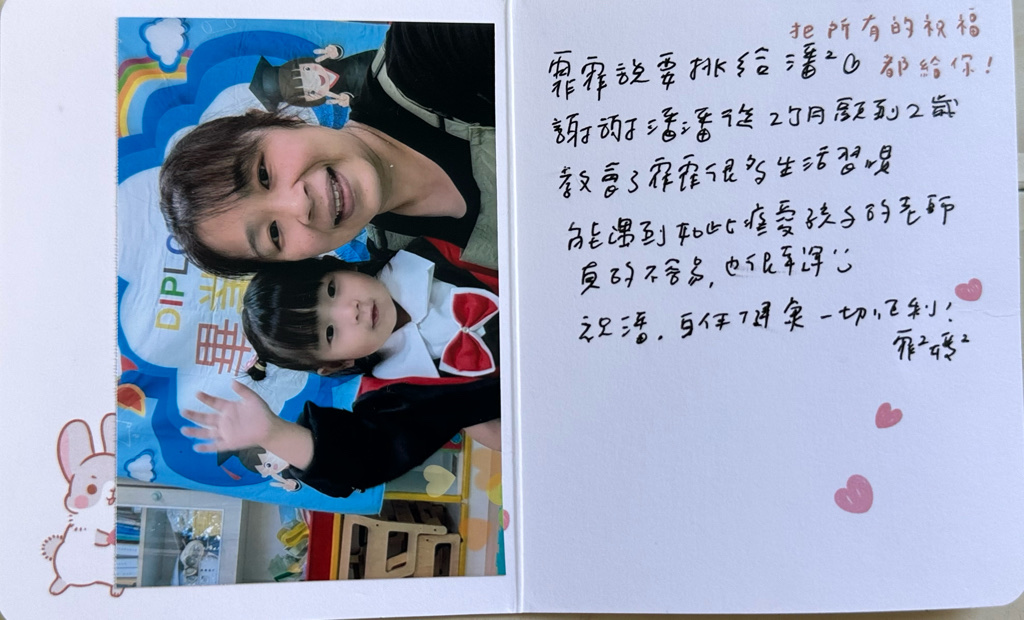 DIPLO
畢業
把所有的祝福
都給你！
霏霏說要挑給潘²
謝謝潘潘從2個月顧到2歲
教會了霏霏很多生活習慣
能遇到如此疼愛孩子的老師
真的不容易，也很幸運
祝潘，身体健康一切順利！
霏²媽²